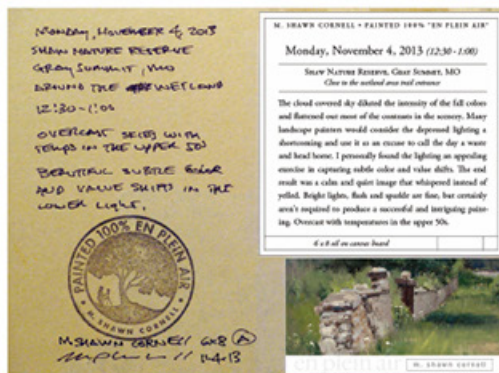 MONDAY, NOVEMBER 4, 2013
SHAW NATURE RESERVE
GRAY SUMMIT, MO
AROUND THE WETLAND
12:30-1:00
OVERCAST SKIES WITH
TEMPS IN THE UPPER 50S
BEAUTIFUL SUBTLE COLOR
AND VALUE SHIFTS IN THE
LOWER LIGHT.
PAINTED 100% EN PLEIN AIR
M. SHAWN CORNELL
M SHAWN CORNELL 6X8 A
11-4-13
M. SHAWN CORNELL • PAINTED 100% "EN PLEIN AIR"
Monday, November 4, 2013 (12:30 - 1:00)
SHAW NATURE RESERVE, GRAY SUMMIT, MO
Close to the wetland area trail entrance
The cloud covered sky diluted the intensity of the fall colors
and flattened out most of the contrasts in the scenery. Many
landscape painters would consider the depressed lighting a
shortcoming and use it as an excuse to call the day a waste
and head home. I personally found the lighting an appealing
exercise in capturing subtle color and value shifts. The end
result was a calm and quiet image that whispered instead of
yelled. Bright lights, flash and sparkle are fine, but certainly
aren't required to produce a successful and intriguing paint-
ing. Overcast with temperatures in the upper 50s.
6 x 8 oil on canvas board
en plein air
m. shawn cornell